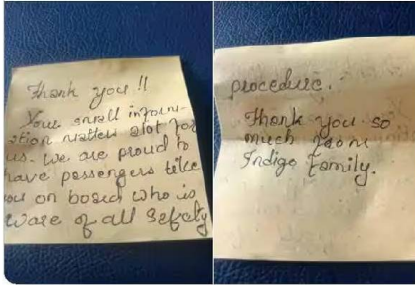 Thank you !!
Your small inform-
ation matters alot for
us. We are proud to
have passengers like
you on board who is
aware of all Safety
procedure.
Thank you so
much from
Indigo family.